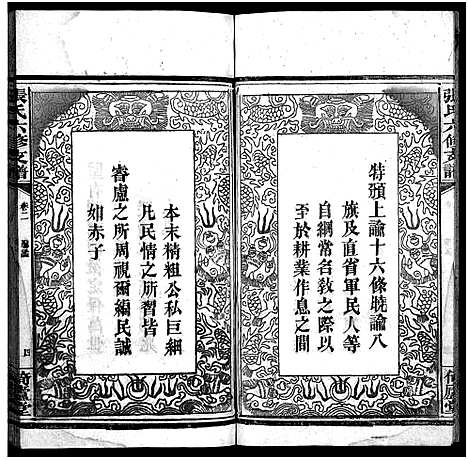 特頒上諭十六條曉諭八
旗及直省軍民人等
自綱常名教之際以
至於耕業作息之間
本末精粗公私巨細
凡民情之所習皆
睿慮之所周視爾編民誠
如赤子
張氏六修支譜
卷二
四